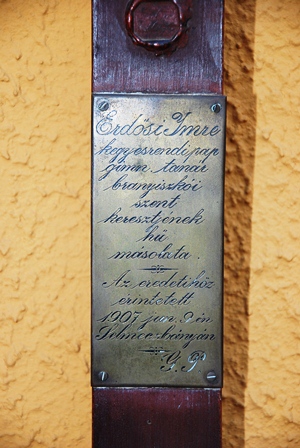 Erdősi Imre
kegyesrendi pap
gimn. tanár
branyiszkói
szent
keresztjének
hű
másolata.
Az eredetihöz
érintetett
1907 jan. 9. én
Selmeczbányán
G. P.